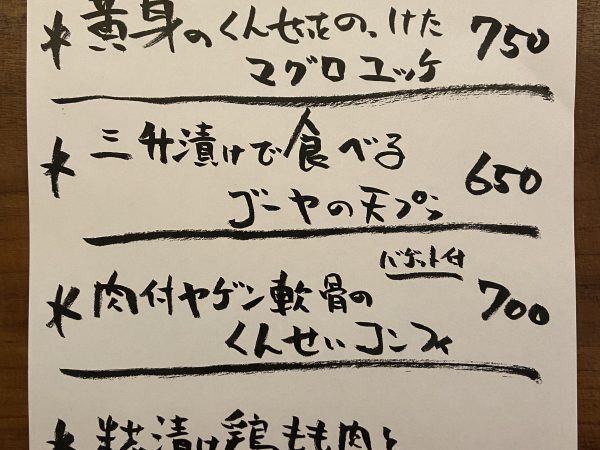 *黄身のくんせいの、けた
マグロユッケ 750
*三升漬けで食べる
ゴーヤの天プラ 650
*肉付ヤゲン軟骨の バゲット付
くんせいコンフィ 700
*糀漬け鶏もも肉と